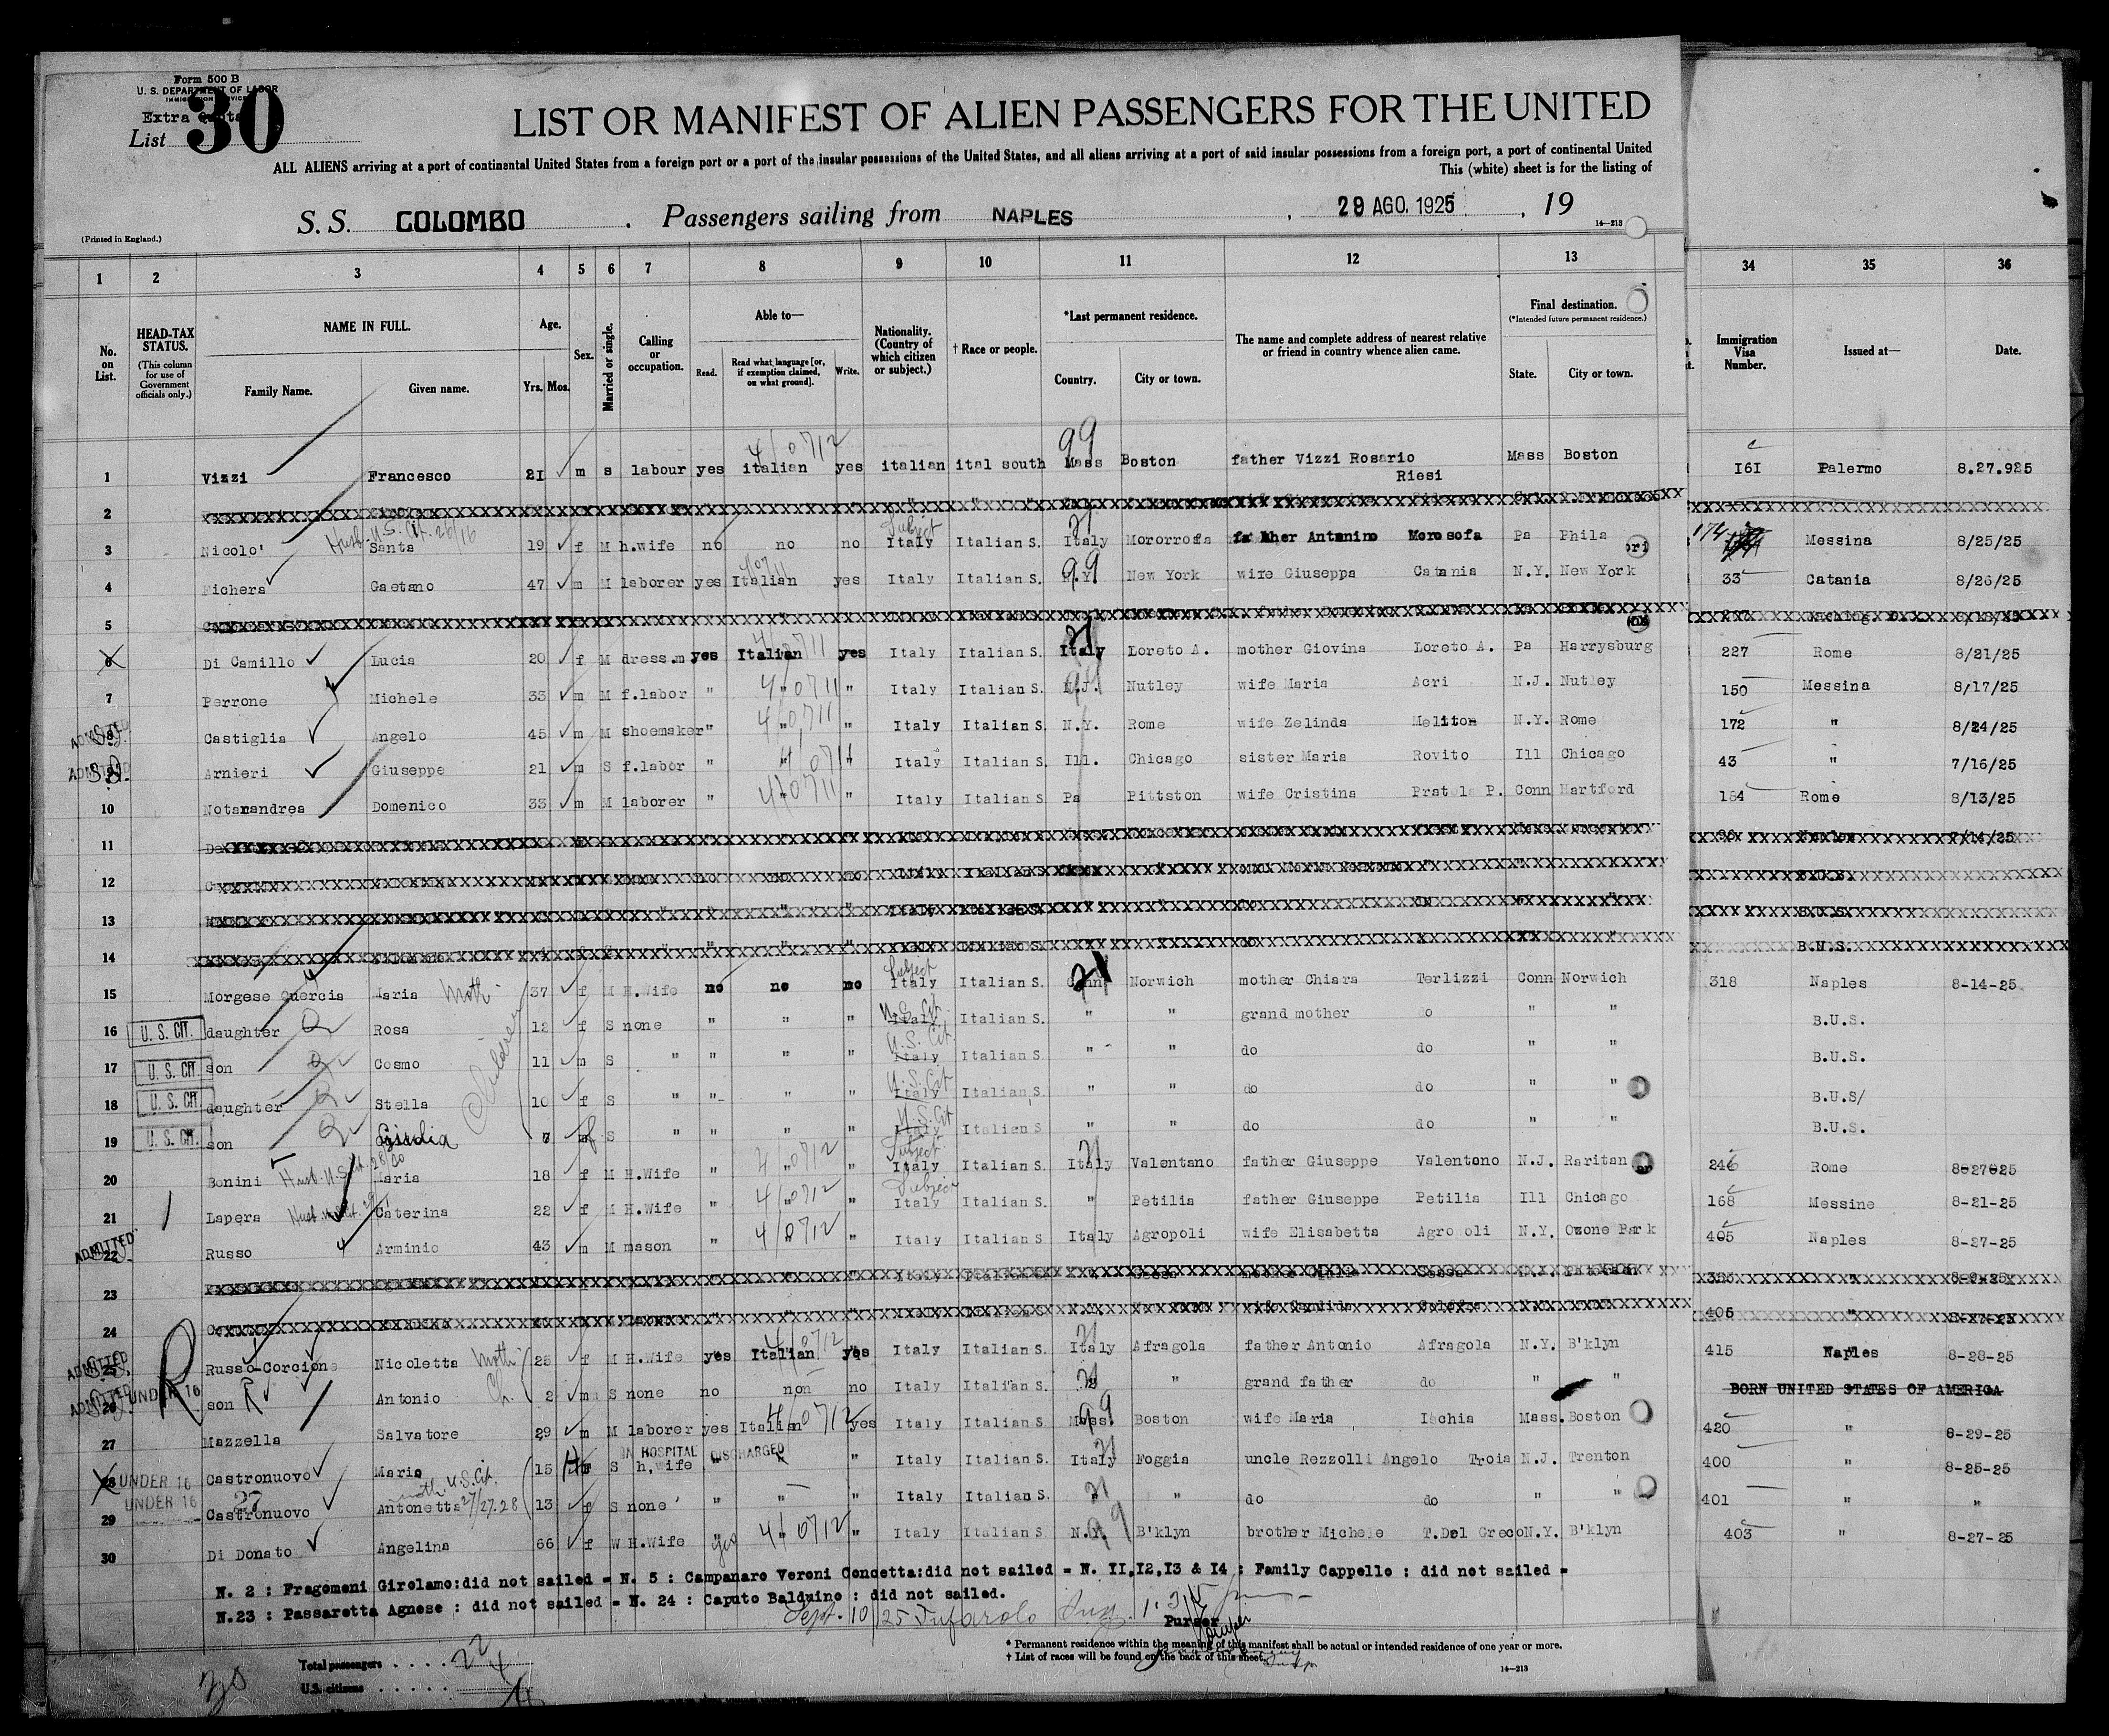 Form 500 B
U. S. DEPARTMENT OF LABOR
IMMIGRATION SERVICE
Extra Quota
List 30
LIST OR MANIFEST OF ALIEN PASSENGERS FOR THE UNITED
ALL ALIENS arriving at a port of continental United States from a foreign port or a port of the insular possessions of the United States, and all aliens arriving at a port of said insular possessions from a foreign port, a port of continental United
This (white) sheet is for the listing of
S. S. COLOMBO . Passengers sailing from NAPLES , 29 AGO. 1925 , 19
(Printed in England.) 14—213
1 2 3 4 5 6 7 8 9 10 11 12 13 34 35 36
No. on List. HEAD-TAX STATUS. (This column for use of Government officials only.) NAME IN FULL. Age. Sex. Married or single. Calling or occupation. Able to— Nationality. (Country of which citizen or subject.) † Race or people. *Last permanent residence. The name and complete address of nearest relative or friend in country whence alien came. Final destination. (*Intended future permanent residence.) Immigration Visa Number. Issued at— Date.
Family Name. Given name. Yrs. Mos. Read. Read what language [or, if exemption claimed, on what ground]. Write. Country. City or town. State. City or town.
1 Vizzi Francesco 21 m s labour yes italian 4/0712 yes italian ital south Mass 99 Boston father Vizzi Rosario Riesi Mass Boston 161 Palermo 8.27.925
2
3 Nicolo' Husb. U.S. Cit. 26/16 Santa 19 f M h.wife no no no Subject Italy Italian S. Italy Mororrofa father Antonino Morosofa Pa Phila 174 Messina 8/25/25
4 Fichera Gaetano 47 m M laborer yes Italian yes Italy Italian S. N.Y. 99 New York wife Giuseppa Catania N.Y. New York 33 Catania 8/26/25
5
6 Di Camillo Lucia 20 f M dress.m yes Italian yes Italy Italian S. Italy Loreto A. mother Giovina Loreto A. Pa Harrysburg 227 Rome 8/21/25
7 Perrone Michele 33 m M f.labor " 4/0711 " Italy Italian S. N.J. Nutley wife Maria Acri N.J. Nutley 150 Messina 8/17/25
ADMITTED 8 Castiglia Angelo 45 m M shoemaker " 4/0711 " Italy Italian S. N.Y. Rome wife Zelinda Meliton N.Y. Rome 172 " 8/24/25
ADMITTED 9 Arnieri Giuseppe 21 m S f.labor " " Italy Italian S. Ill. Chicago sister Maria Rovito Ill Chicago 43 " 7/16/25
10 Notarandrea Domenico 33 m M laborer " 4/0711 " Italy Italian S Pa Pittston wife Cristina Pratola P. Conn Hartford 184 Rome 8/13/25
11 7/14/25
12 B.U.S.
13 B.U.S.
14 B.U.S.
15 Morgese Quercia Maria Moth. 37 f M H.Wife no no no Subject Italy Italian S. Conn Norwich mother Chiara Terlizzi Conn Norwich 318 Naples 8-14-25
16 U. S. CIT. daughter Rosa 12 f S none " " " U.S. Cit. Italy Italian S. " " grand mother do " " B.U.S.
17 U. S. CIT. son Cosmo 11 m S " " " " U.S. Cit. Italy Italian S. " " do do " " B.U.S.
18 U. S. CIT. daughter Stella Children 10 f S " " " " U.S. Cit. Italy Italian S. " " do do " " B.U.S/
19 U. S. CIT. son Giulia 7 f S " " " " U.S. Cit. Italy Italian S. " " do do " " B.U.S.
20 Bonini Husb. U.S. Cit. Maria 18 f M H.Wife " 4/0712 " Subject Italy Italian S. Italy Valentano father Giuseppe Valentono N.J. Raritan 246 Rome 8-27-25
21 Lapera Caterina 22 f M H.Wife " 4/0712 " Subject Italy Italian S. " Petilia father Giuseppe Petilia Ill Chicago 168 Messine 8-21-25
ADMITTED 22 Russo Arminio 43 m M mason " 4/0712 " Italy Italian S. Italy Agropoli wife Elisabetta Agro oli N.Y. Ozone Park 405 Naples 8-27-25
23
24 405 " 8-27-25
ADMITTED 25 Russo-Corcione Nicoletta Moth. 25 f M H.Wife yes Italian yes Italy Italian S. Italy Afragola father Antonio Afragola N.Y. B'klyn 415 Naples 8-28-25
ADMITTED 26 UNDER 16 son Antonio Ch. 2 m S none no non no Italy Italian S. " " grand father do " " BORN UNITED STATES OF AMERICA
27 Mazzella Salvatore 29 m M laborer yes Italian 4/0712 yes Italy Italian S. Mass. 99 Boston wife Maria Ischia Mass. Boston 420 " 8-29-25
28 UNDER 16 Castronuovo Maria 15 f S h.wife IN HOSPITAL DISCHARGED " Italy Italian S. Italy Foggia uncle Rezzolli Angelo Troia N.J. Trenton 400 " 8-25-25
29 UNDER 16 Castronuovo Antonetta moth. U.S. Cit. 13 f S none " " " Italy Italian S. " " do do " " 401 " "
30 Di Donato Angelina 66 f W H.Wife " yes 4/0712 " Italy Italian S N.Y. 99 B'klyn brother Michele T.Del Greco N.Y. B'klyn 403 " 8-27-25
N. 2 : Fragomeni Girolamo:did not sailed = N. 5 : Campanaro Veroni Concetta:did not sailed = N. 11,12,13 & 14 : Family Cappello : did not sailed =
N.23 : Passaretta Agnese : did not sailed = N. 24 : Caputo Balduino : did not sailed.
Sept. 10/25 Tufarolo Insp.
Purser
* Permanent residence within the meaning of this manifest shall be actual or intended residence of one year or more.
† List of races will be found on the back of this sheet.
14—213
Total passengers . . . . 22
U.S. citizens . . . . . 4
30